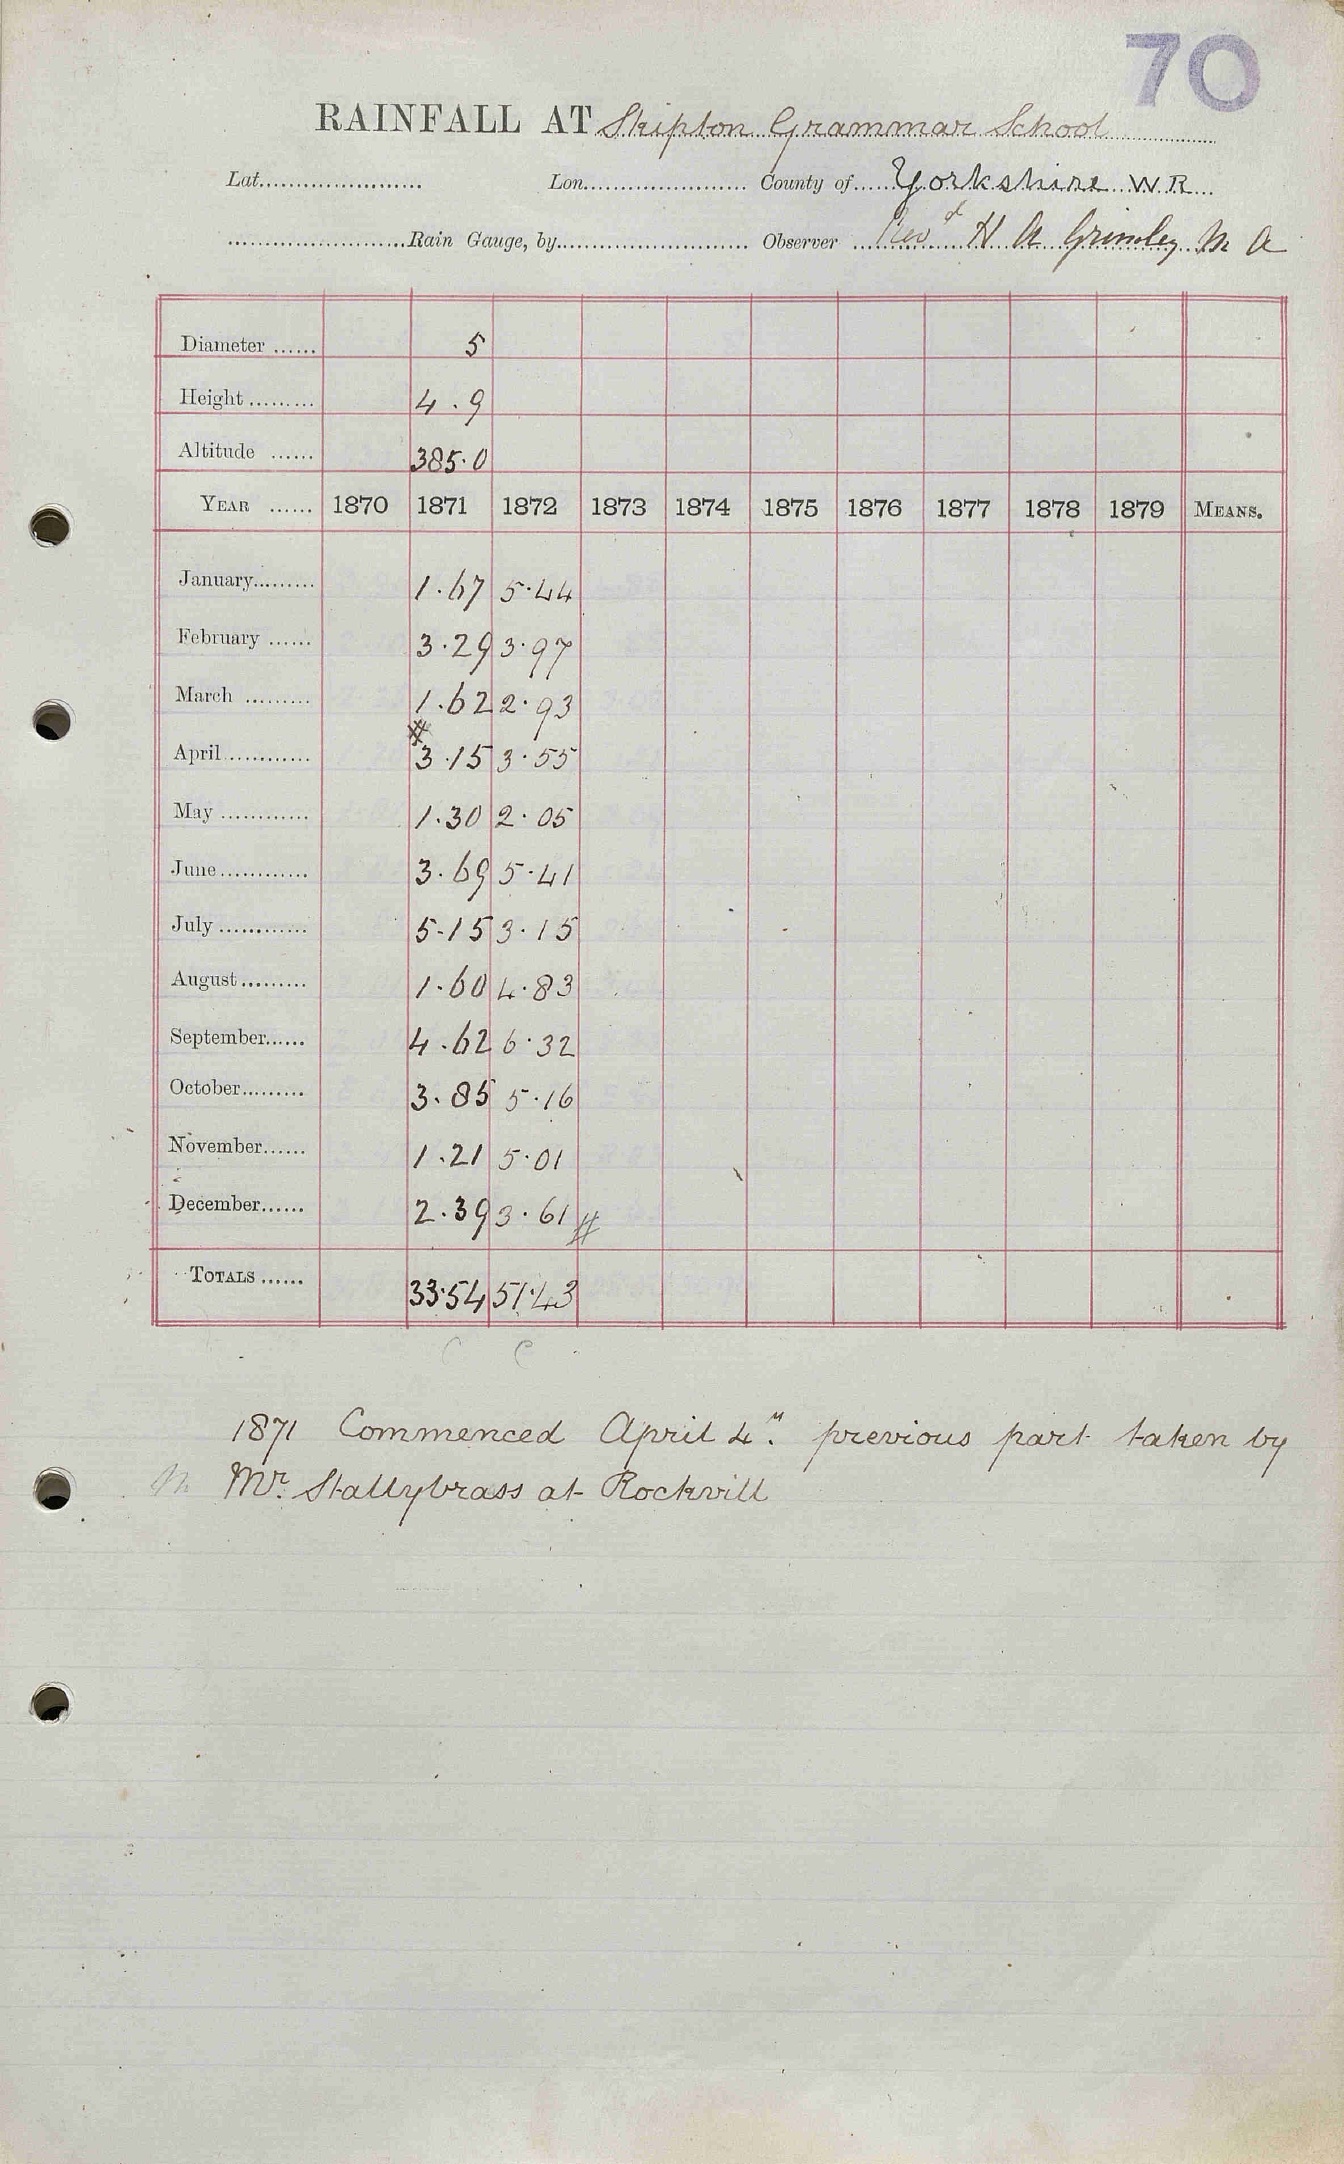 70
RAINFALL AT Skipton Grammar School
Lat. Lon. County of Yorkshire W R
Rain Gauge, by Observer Revd H A Grimley M A
Diameter 5
Height 4.9
Altitude 385.0
YEAR 1870 1871 1872 1873 1874 1875 1876 1877 1878 1879 MEANS.
January 1.67 5.44
February 3.29 3.97
March 1.62 2.93
#
April 3.15 3.55
May 1.30 2.05
June 3.69 5.41
July 5.15 3.15
August 1.60 4.83
September 4.62 6.32
October 3.85 5.16
November 1.21 5.01
December 2.39 3.61 #
TOTALS 33.54 51.43
C C
1871 Commenced April 4th previous part taken by
M Mr. Stallybrass at Rockvill